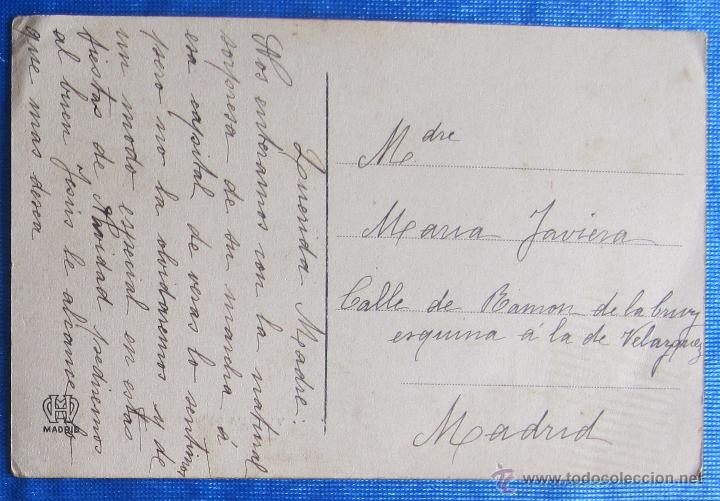 Querida Madre:
Nos enteramos con la natural
sorpresa de su marcha á
esa capital de veras lo sentimos
pero no la olvidaremos y de
un modo especial en estas
fiestas de Navidad pediremos
al buen Jesús le alcance lo
que mas desea
Mdre
Maria Javiera
Calle de Ramon de la Cruz
esquina á la de Velazquez
Madrid
MADRID
todocoleccion.net